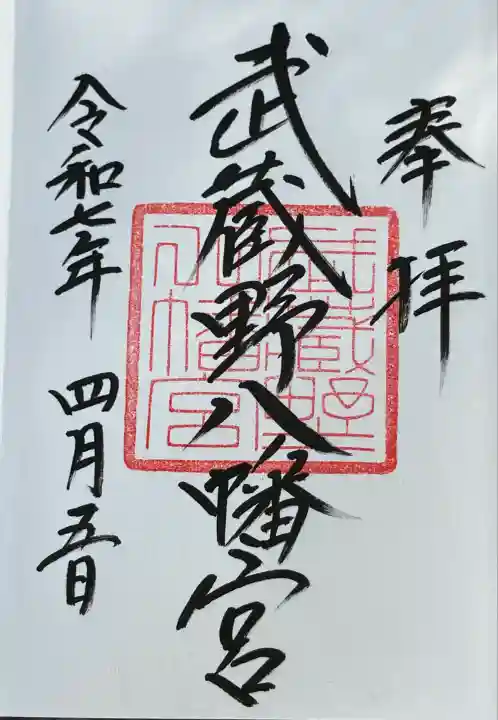 奉拝
武蔵野八幡宮
武蔵野
八幡宮
令和七年 四月五日